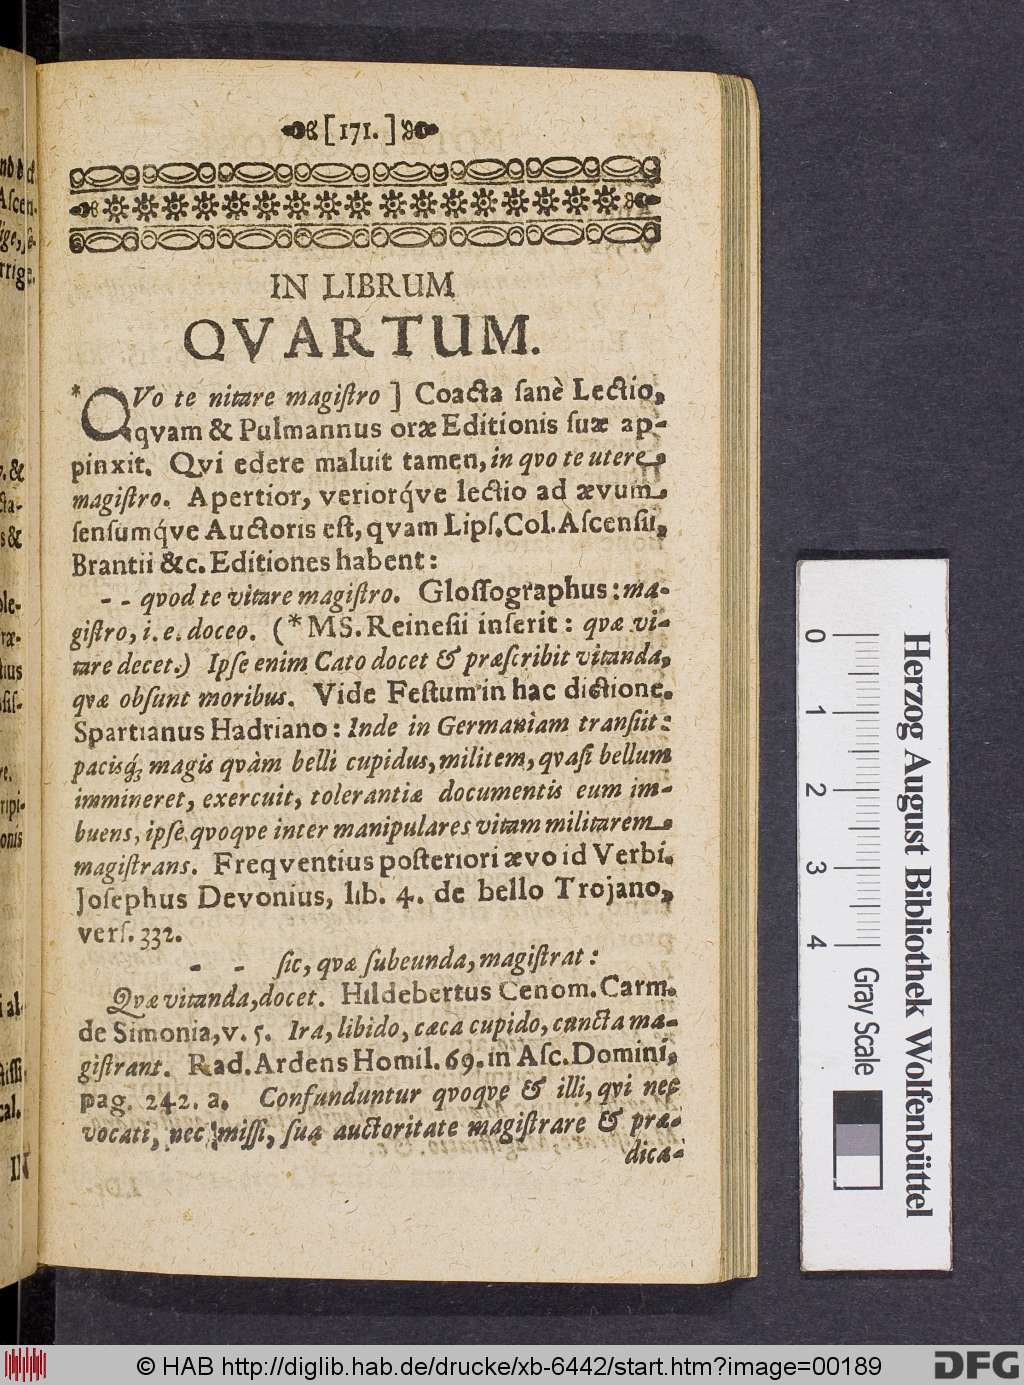 [171.]
IN LIBRUM
QVARTUM.
*QVo te nitare magiſtro] Coacta ſanè Lectio,
qvam & Pulmannus oræ Editionis ſuæ ap-
pinxit. Qvi edere maluit tamen, in qvo te utere
magiſtro. Apertior, veriorq́ve lectio ad ævum
ſenſumq́ve Auctoris eſt, qvam Lipſ. Col. Aſcenſii,
Brantii &c. Editiones habent:
- - qvod te vitare magiſtro. Gloſſographus: ma-
giſtro, i. e. doceo. (*MS. Reineſii inſerit: qvæ vi-
tare decet.) Ipſe enim Cato docet & præſcribit vitanda,
qvæ obſunt moribus. Vide Feſtum in hac dictione.
Spartianus Hadriano: Inde in Germaniam tranſiit:
pacisq́; magis qvàm belli cupidus, militem, qvaſi bellum
immineret, exercuit, tolerantiæ documentis eum im-
buens, ipſe qvoqve inter manipulares vitam militarem
magiſtrans. Freqventius poſteriori ævo id Verbi.
Joſephus Devonius, lib. 4. de bello Trojano,
verſ. 332.
- - ſic, qvæ ſubeunda, magiſtrat:
Qvæ vitanda, docet. Hildebertus Cenom. Carm.
de Simonia, v. 5. Ira, libido, cæca cupido, cuncta ma-
giſtrant. Rad. Ardens Homil. 69. in Aſc. Domini,
pag. 242. a. Confunduntur qvoqve & illi, qvi nec
vocati, nec miſſi, ſua auctoritate magiſtrare & præ-
dica-
0
1
2
3
4
Gray Scale
Herzog August Bibliothek Wolfenbüttel
© HAB http://diglib.hab.de/drucke/xb-6442/start.htm?image=00189
DFG